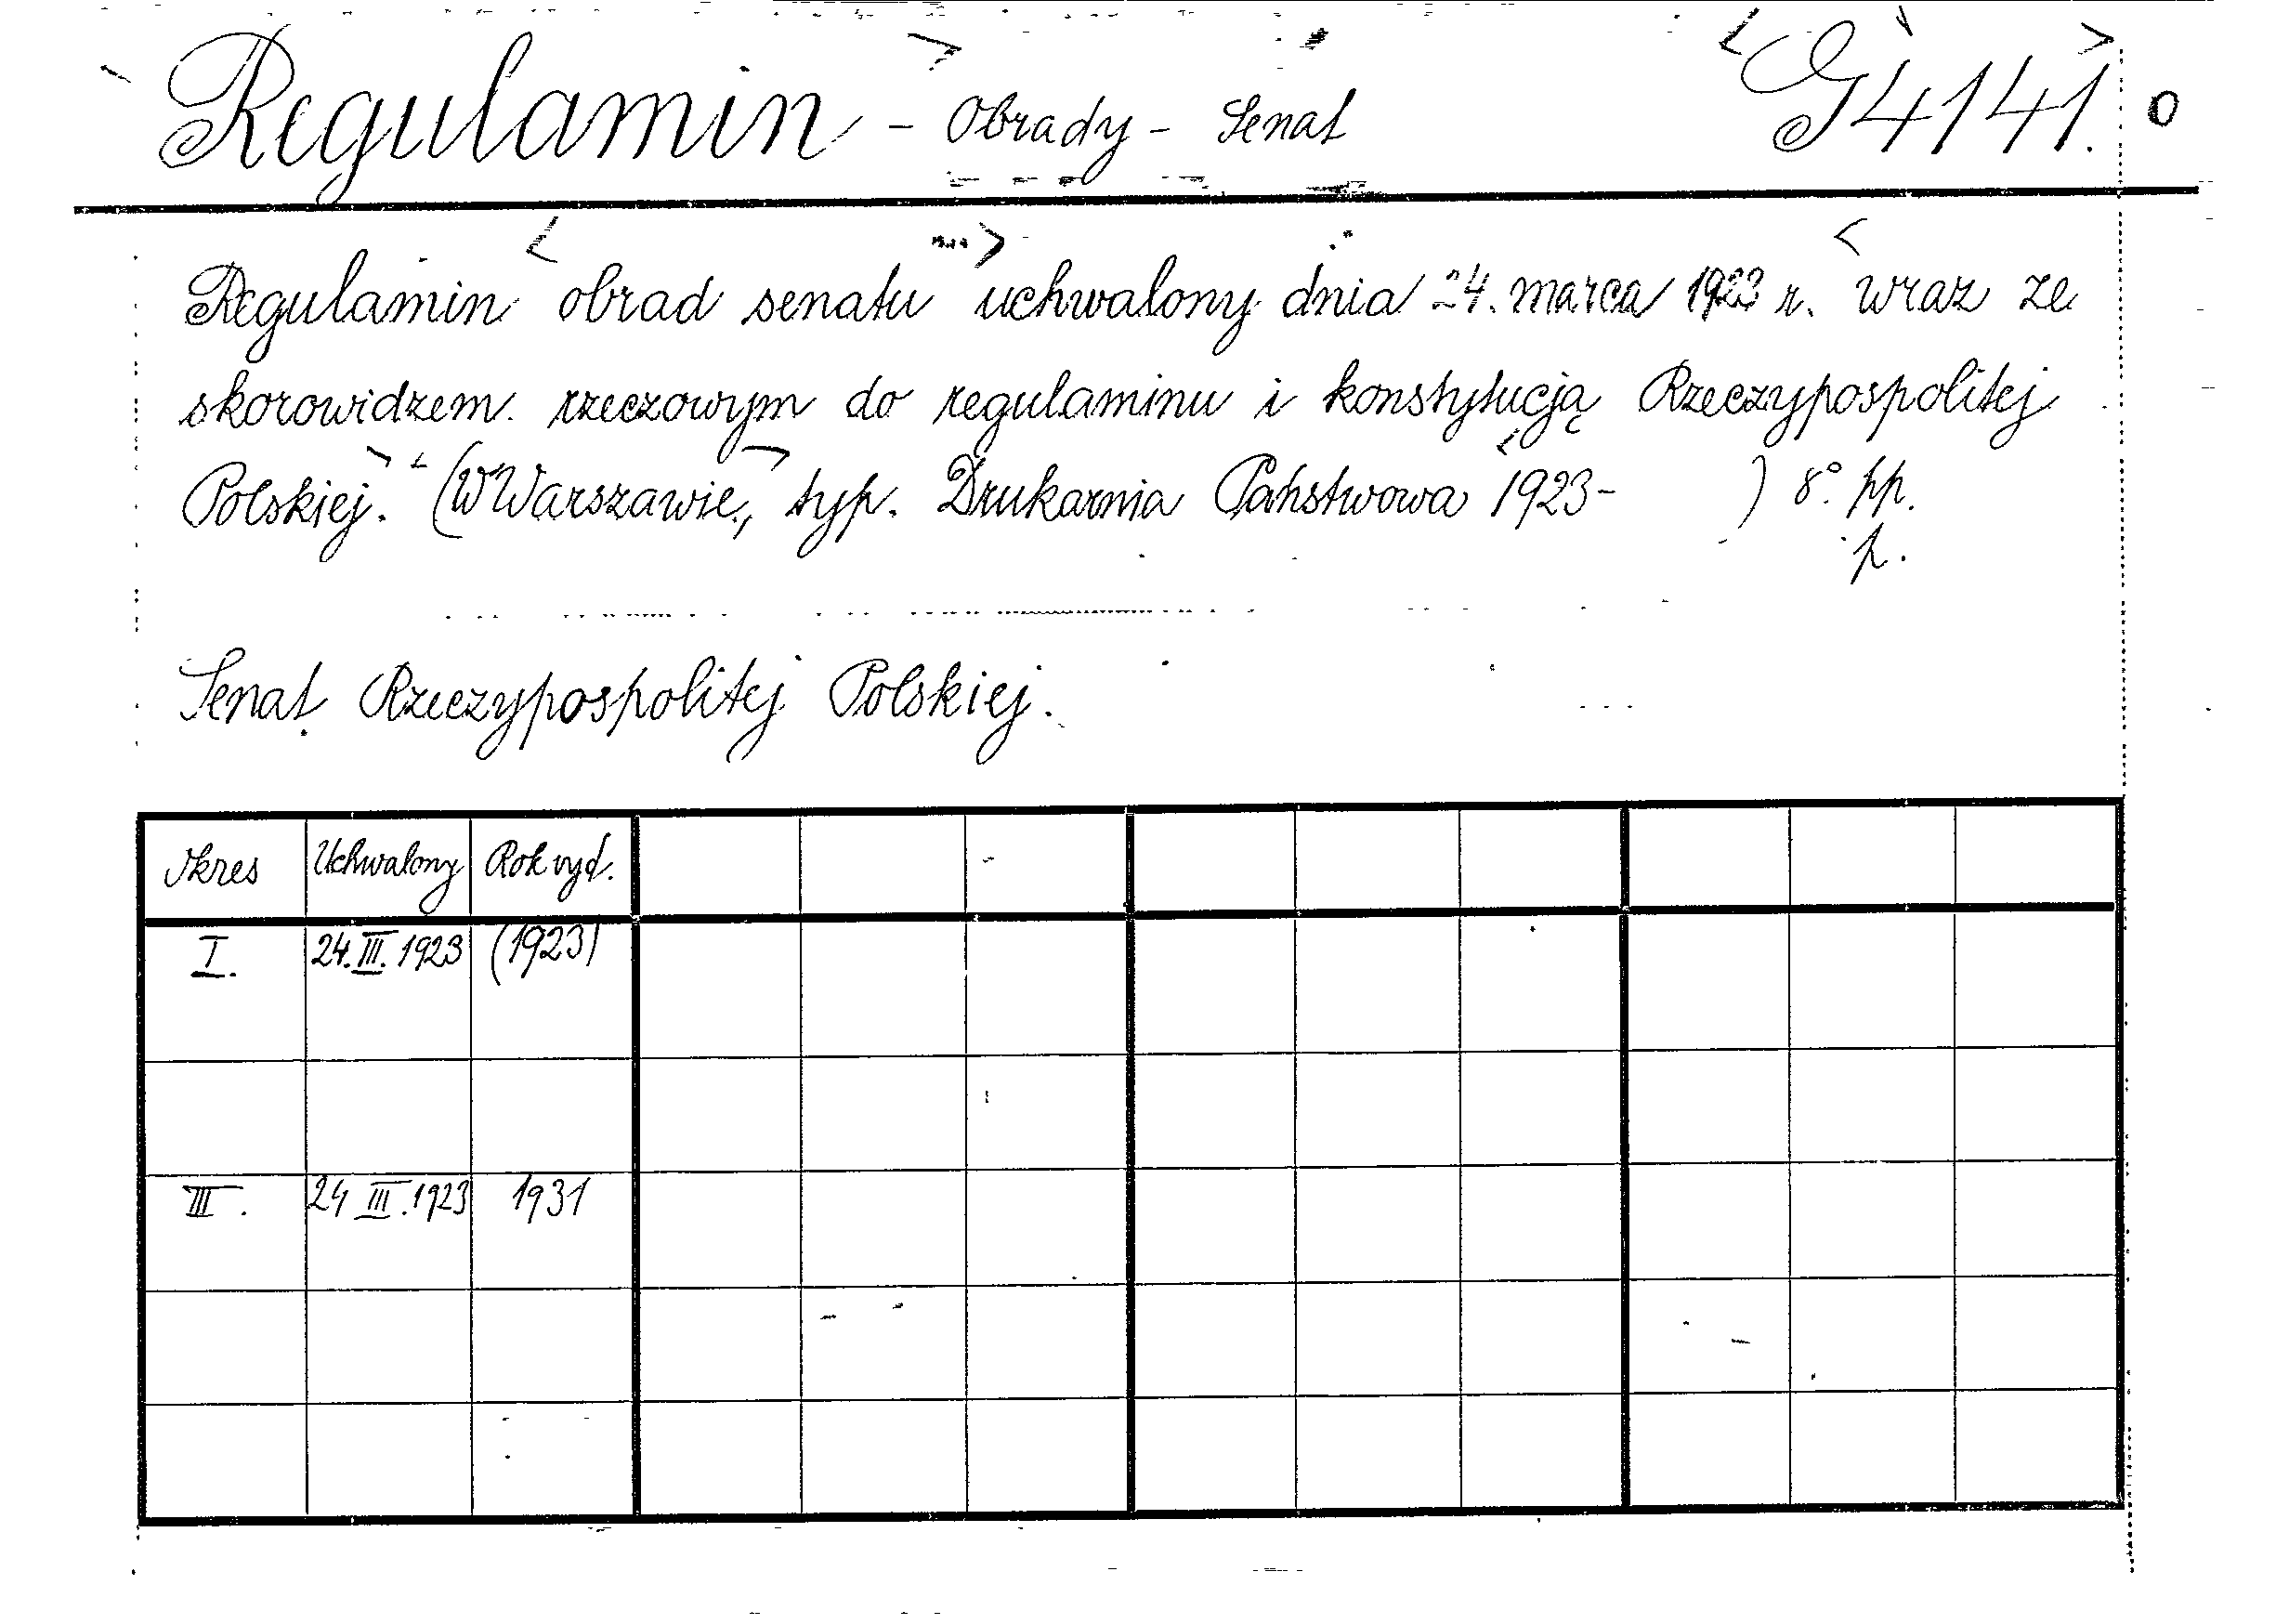 Regulamin - Obrady - Senat G 4141. 0
Regulamin obrad senatu uchwalony dnia 24. marca 1923 r. wraz ze
skorowidzem rzeczowym do regulaminu i konstytucją Rzeczypospolitej
Polskiej. (W Warszawie, typ. Drukarnia Państwowa 1923- ) 8° pp.
p.
Senat Rzeczypospolitej Polskiej.
Okres Uchwalony Rok wyd.
I. 24.III.1923 (1923)
III. 24 III.1923 1931